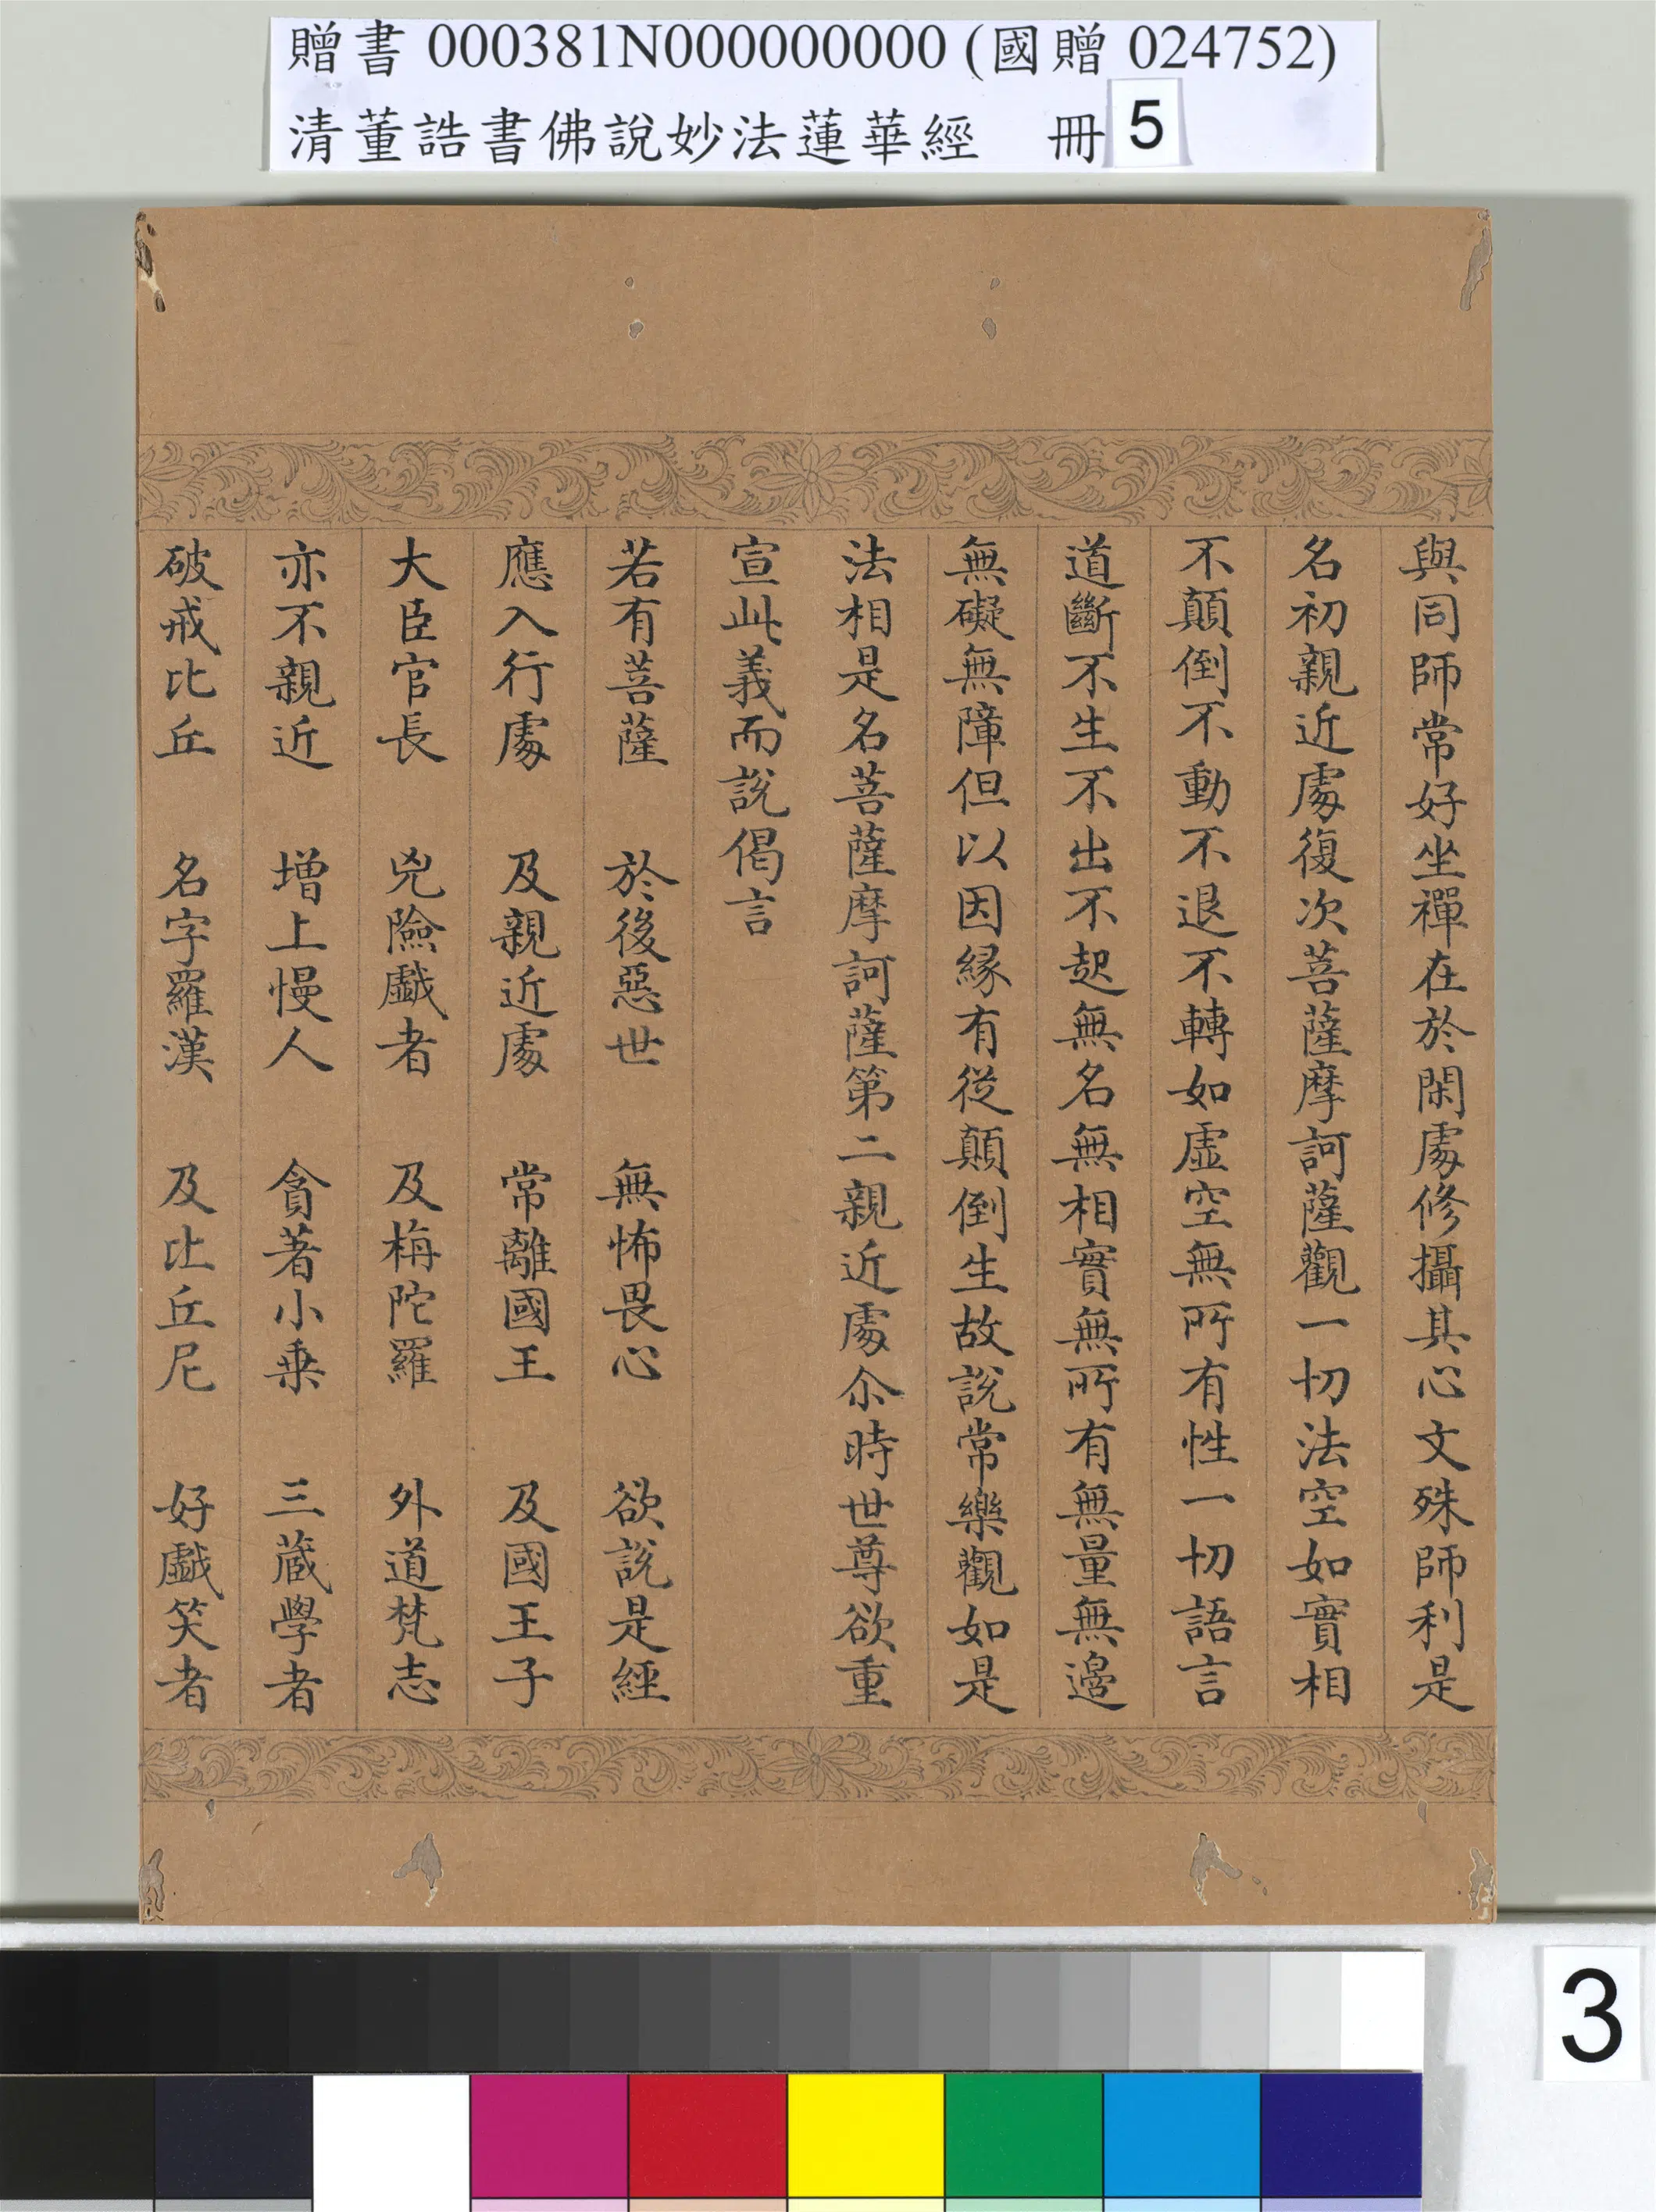 贈書 000381N000000000 (國贈 024752)
清董誥書佛說妙法蓮華經 冊 5
與同師常好坐禪在於閑處修攝其心文殊師利是
名初親近處復次菩薩摩訶薩觀一切法空如實相
不顛倒不動不退不轉如虛空無所有性一切語言
道斷不生不出不起無名無相實無所有無量無邊
無礙無障但以因緣有從顛倒生故說常樂觀如是
法相是名菩薩摩訶薩第二親近處尒時世尊欲重
宣此義而說偈言
若有菩薩 於後惡世 無怖畏心 欲說是經
應入行處 及親近處 常離國王 及國王子
大臣官長 兇險戲者 及栴陀羅 外道梵志
亦不親近 增上慢人 貪著小乘 三藏學者
破戒比丘 名字羅漢 及比丘尼 好戲笑者
3